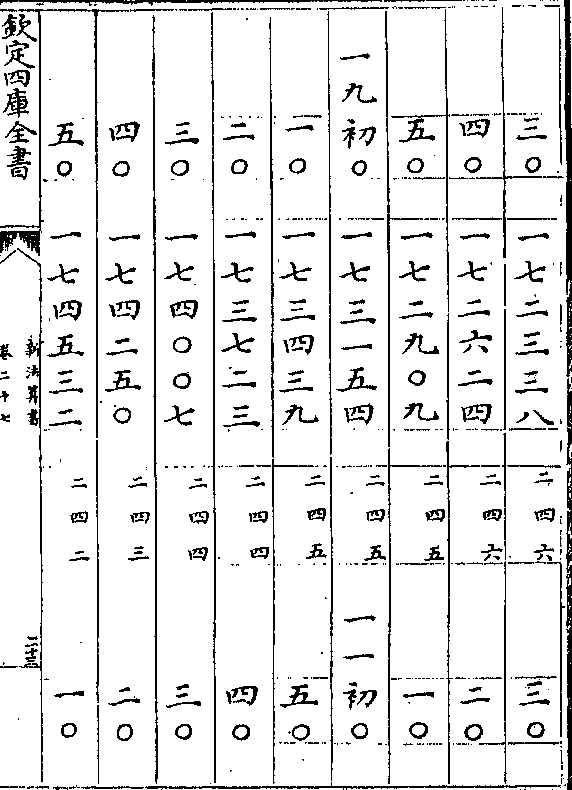 三〇 一七二三三八 二四六 三〇
四〇 一七二六二四 二四六 二〇
五〇 一七二九〇九 二四五 一〇
一九初〇 一七三一五四 二四五 一一初〇
一〇 一七三四三九 二四五 五〇
二〇 一七三七二三 二四四 四〇
三〇 一七四〇〇七 二四四 三〇
四〇 一七四二五〇 二四三 二〇
五〇 一七四五三二 二四二 一〇
欽定四庫全書
新法算書
卷二十七
二十三